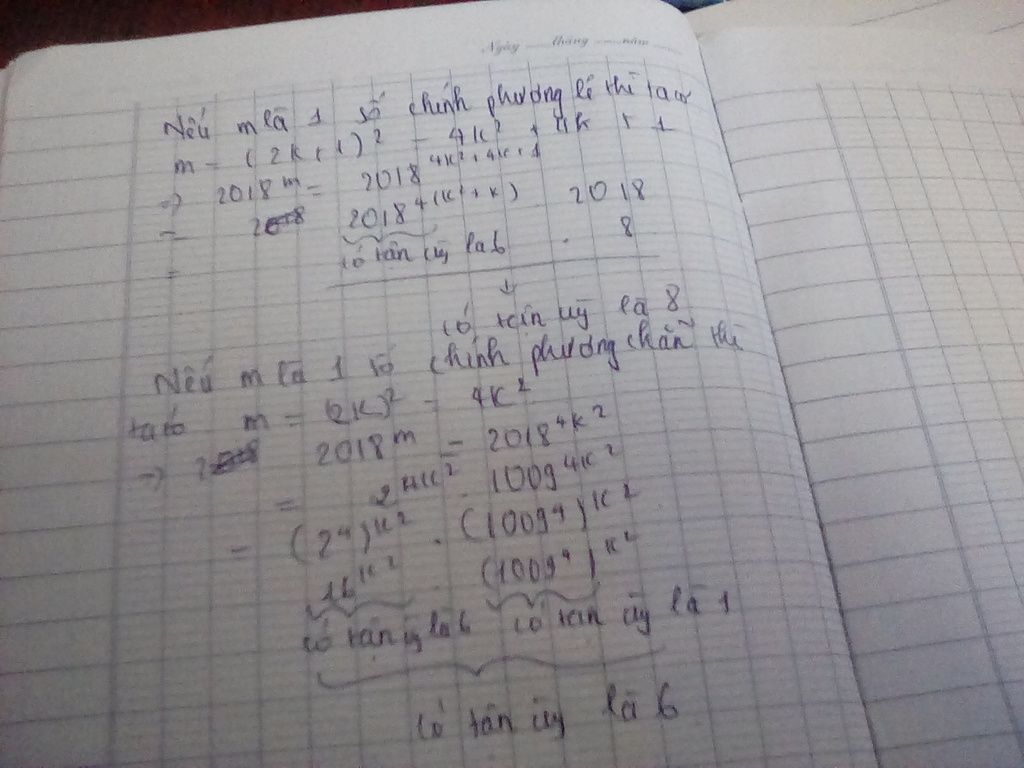 Ngày tháng năm
Nếu m là 1 số chính phương lẻ thì ta có
m = (2k+1)² = 4k² + 4k + 1
=> 2018ᵐ = 2018^(4k²+4k+1)
= 2018^4(k²+k) 2018
= có tận cùng là 6 . 8
↓
có tận cùng là 8
Nếu m là 1 số chính phương chẵn thì
ta có m = (2k)² = 4k²
=> 2018ᵐ = 2018^4k²
= 2^4k² . 1009^4k²
= (2⁴)^k² . (1009⁴)^k²
16^k² . (1009⁴)^k²
có tận cùng là 6 có tận cùng là 1
có tận cùng là 6